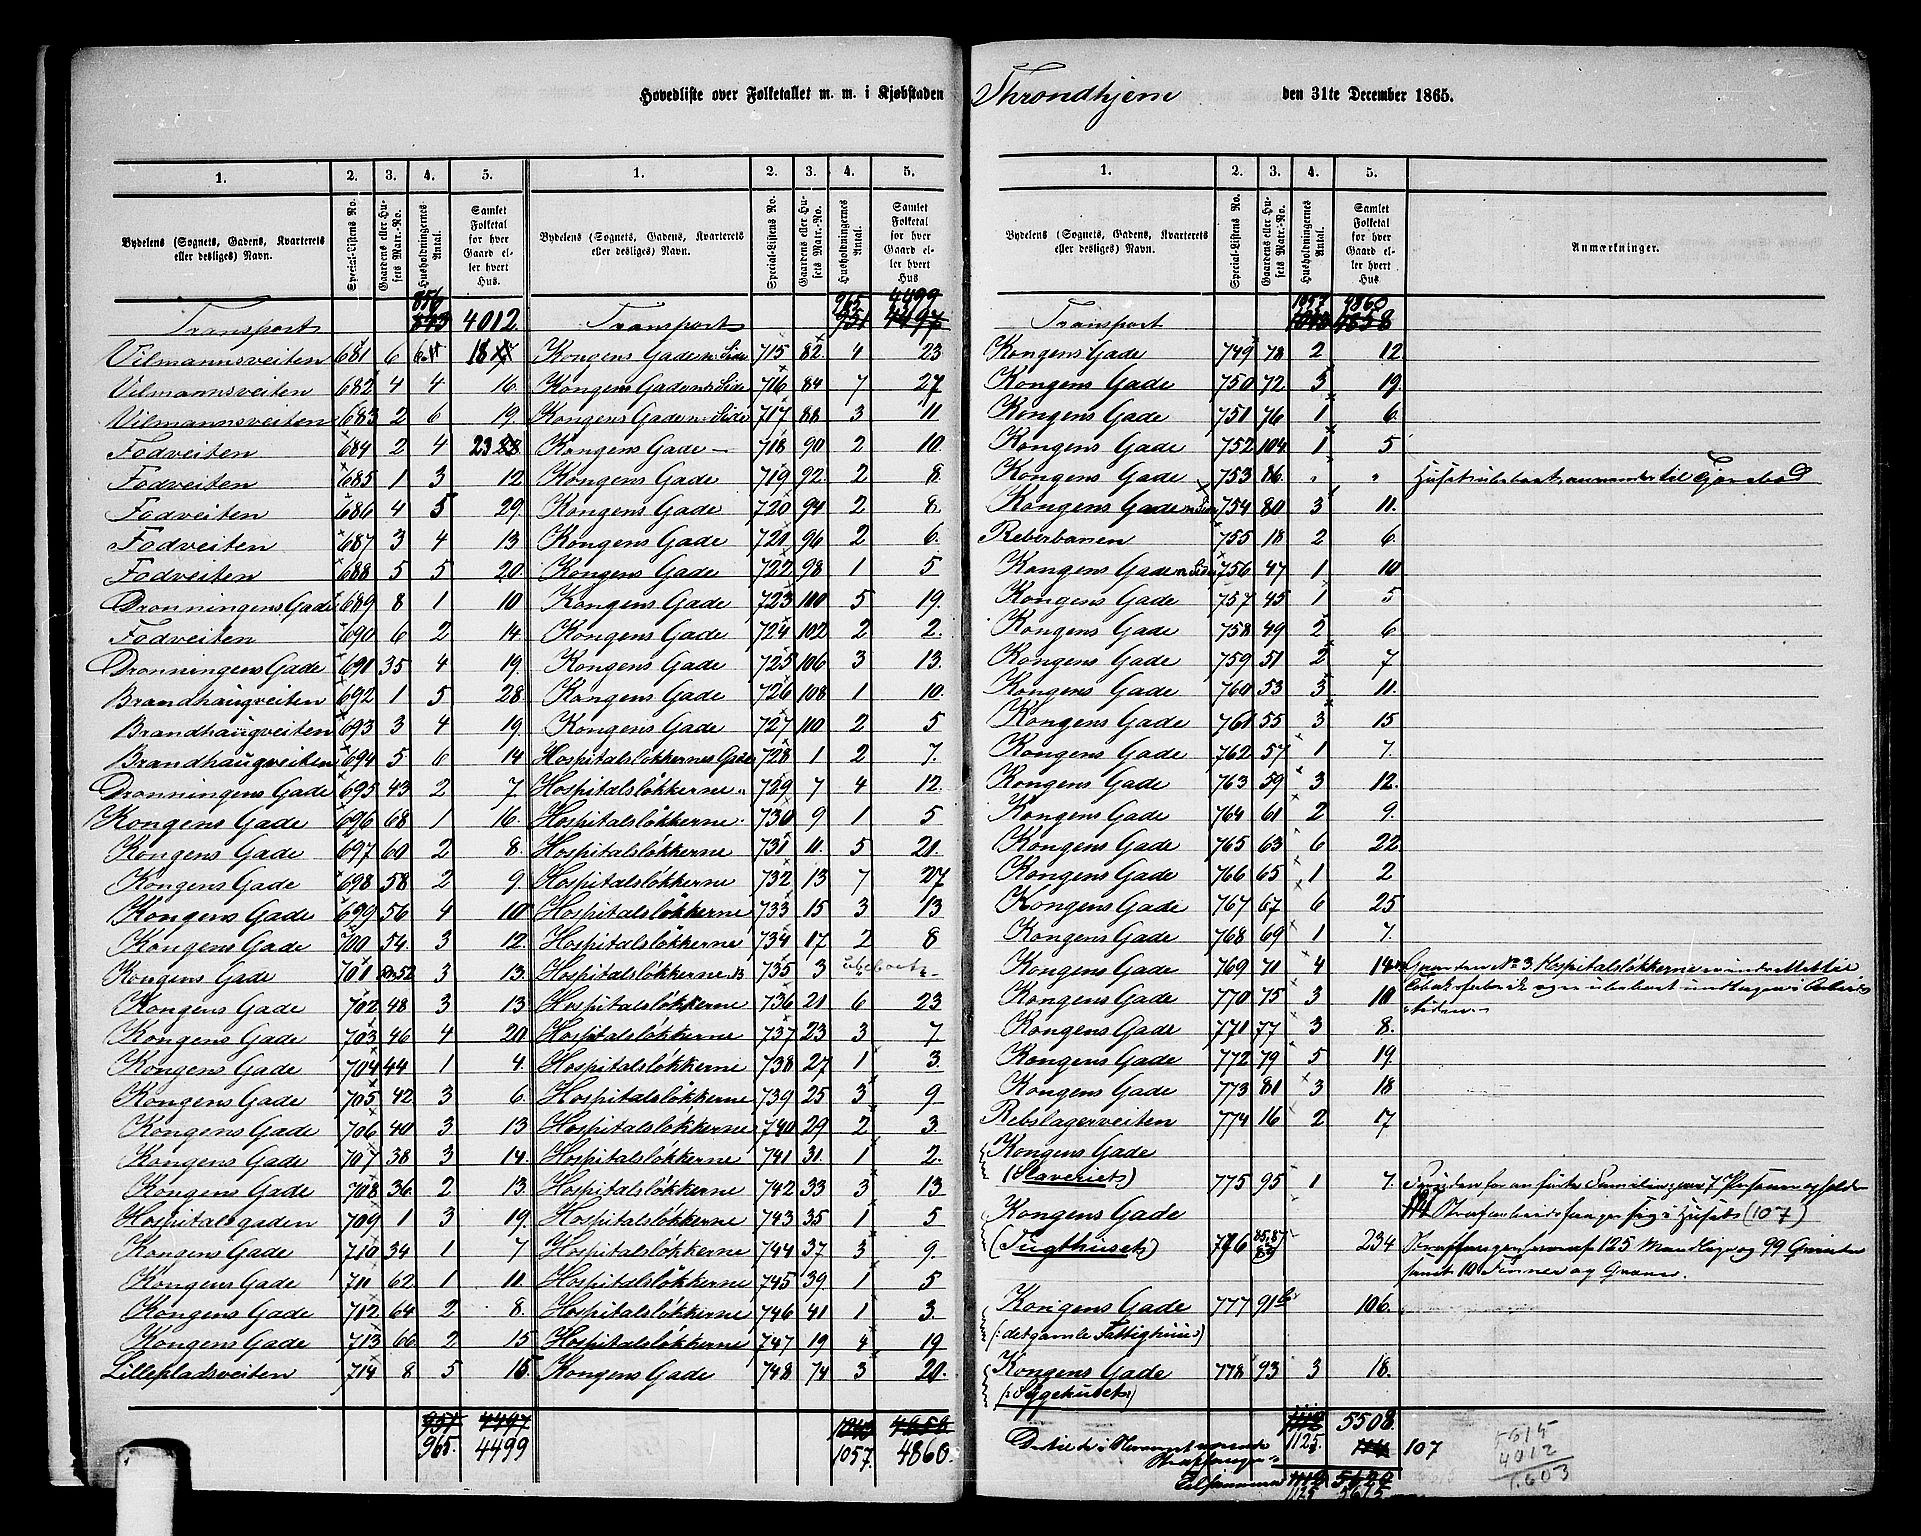 Hovedliste over Folketallet m. m. i Kjøbstaden Throndhjem den 31te December 1865.
1. 2. 3. 4. 5. 1. 2. 3. 4. 5.
Bydelens (Sognets, Gadens, Kvarterets eller desliges) Navn. Special-Listens No. Gaardens eller Husets Matr.-No. Husholdningernes Antal. Samlet Folketal for hver Gaard eller hvert Hus.
Bydelens (Sognets, Gadens, Kvarterets eller desliges) Navn. Special-Listens No. Gaardens eller Husets Matr.-No. Husholdningernes Antal. Samlet Folketal for hver Gaard eller hvert Hus.
Transport 856 843 4012 Transport 965 951 4499 4497
Vilmannsveiten 681 6 6 18 Kongens Gade n. Side 715 82 4 23
Vilmannsveiten 682 4 4 16. Kongens Gade n Side 716 84 7 27
Vilmannsveiten 683 2 6 19. Kongens Gade n. Side 717 88 3 11
Fodveiten 684 2 4 23 Kongens Gade — 718 90 2 10.
Fodveiten 685 1 3 12 Kongens Gade 719 92. 2 8.
Fodveiten 686 4 5 29. Kongens Gade 720 94 2 8.
Fodveiten 687 3 4 13 Kongens Gade 721 96 2 6.
Fodveiten 688 5 5 20 Kongens Gade 722 98 1 5
Dronningens Gade 689 8 1 10 Kongens Gade 723 100 5 19.
Fodveiten 690 6 2 14. Kongens Gade 724 102 2 2.
Dronningens Gade 691 35 4 19. Kongens Gade 725 106 3 13.
Brandhaugveiten 692 1 5 28 Kongens Gade 726 108 1 10.
Brandhaugveiten 693 3 4 19. Kongens Gade 727 110 2 5
Brandhaugveiten 694 5 6 14 Hospitalsløkkernes Gade 728 1 2 7.
Dronningens Gade 695 43 2 7 Hospitalsløkkerne " 729 7 4 12.
Kongens Gade 696 68 1 16. Hospitalsløkkerne. 730 9 1 5
Kongens Gade 697 60 2 8. Hospitalsløkkerne 731 11. 5 21.
Kongens Gade 698 58 2 9. Hospitalsløkkerne 732 13 7 27
Kongens Gade 699 56 4 10 Hospitalsløkkerne 733 15 3 13
Kongens Gade 700 54. 3 12. Hospitalsløkkerne 734 17 2 8
Kongens Gade 701 52 3 13. Hospitalsløkkerne 735 3 ubeboet
Kongens Gade 702 48 3 13 Hospitalsløkkerne 736 21 6 23
Kongens Gade 703 46 4 20 Hospitalsløkkerne 737 23 3 7
Kongens Gade 704 44 1 4. Hospitalsløkkerne 738 27 1 3.
Kongens Gade 705 42 3 6. Hospitalsløkkerne 739 25 3 9
Kongens Gade 706 40 3 13 Hospitalsløkkerne 740 29 2 3.
Kongens Gade 707 38 3 14. Hospitalsløkkerne 741 31. 1 2.
Kongens Gade 708 36 2 13. Hospitalsløkkerne 742 33 3 13
Hospitalsgaden 709 1 3 19. Hospitalsløkkerne 743 35 1 5
Kongens Gade 710 34 1 7 Hospitalsløkkerne 744 37 3 9.
Kongens Gade 711 62 1 11. Hospitalsløkkerne 745 39 1 5
Kongens Gade 712 64 2 8. Hospitalsløkkerne 746 41 1 3.
Kongens Gade 713 66 2 15 Hospitalsløkkerne 747 19 4 19
Lillepladsveiten 714 8 5 15. Kongens Gade 748 74 3 20.
951 4497 4858
965. 4499 1057. 4860.
1. 2. 3. 4. 5.
Bydelens (Sognets, Gadens, Kvarterets eller desliges) Navn. Special-Listens No. Gaardens eller Husets Matr.-No. Husholdningernes Antal. Samlet Folketal for hver Gaard eller hvert Hus Anmærkninger.
Transport 1057 4860 4858
Kongens Gade 749 78 2 12.
Kongens Gade 750 72 3 19.
Kongens Gade 751 76 1 6.
Kongens Gade 752 104. 1 5
Kongens Gade 753 86. " " Huset ubeboet anvendes til
Kongens Gade n Side 754 80 3 11.
Reberbanen 755 18 2 6.
Kongens Gade n. Side 756 47 1 10
Kongens Gade 757 45 1 5
Kongens Gade 758 49 2 6
Kongens Gade 759 51 2 7
Kongens Gade 760 53 3 11.
Kongens Gade 761 55 3 15
Kongens Gade 762 57 1 7.
Kongens Gade 763 59 3 12.
Kongens Gade 764 61 2 9.
Kongens Gade 765 63 6 22
Kongens Gade 766 65 1 2
Kongens Gade 767 67 6 25
Kongens Gade 768 69 1 7.
Kongens Gade 769 71 4 14 Gaarden No 3. Hospitalsløkkerne er indrettet til
Kongens Gade 770 75 3 10 ubeboet undtagen i Arbeids
Kongens Gade 771 77 3 8. tiden.
Kongens Gade 772 79 5 19.
Kongens Gade 773 81 3 18
Rebslagerveiten 774 16 2 17
Kongens Gade
(Slaveriet) 775 95 1 7.
Kongens Gade Huset (107)
(Tugthuset) 776 85, 87 89 234 125 Mandlige og 99 Qvinder
samt 10 og
Kongens Gade 777 91b 106.
(: det gamle Fattighuus)
Kongens Gade 778 93 3 18.
(: Sygehuset :)
1112 5508.
1125. 114 107
Tilsammen 1112 5620
1125 5615
5615
4012
1.603